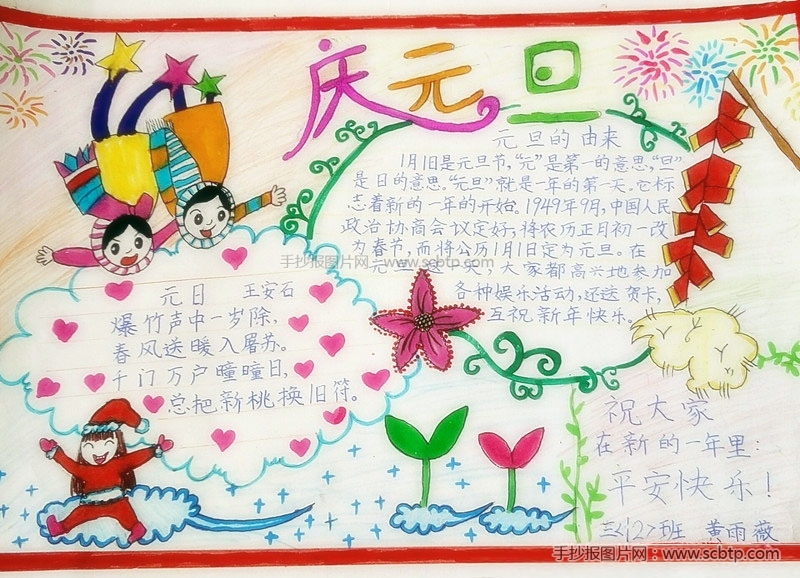 庆元旦
元旦的由来
1月1日是元旦节,“元”是第一的意思,“旦”
是日的意思。“元旦”就是一年的第一天。它标
志着新的一年的开始。1949年9月,中国人民
政治协商会议定好,将农历正月初一改
为春节,而将公历1月1日定为元旦。在
元旦这一天,大家都高兴地参加
各种娱乐活动,还送贺卡,
互祝新年快乐。
手抄报图片网:www.scbtp.com
元日 王安石
爆竹声中一岁除,
春风送暖入屠苏。
千门万户曈曈日,
总把新桃换旧符。
祝大家
在新的一年里:
平安快乐!
三<2>班 黄雨薇
手抄报图片网:www.scbtp.com